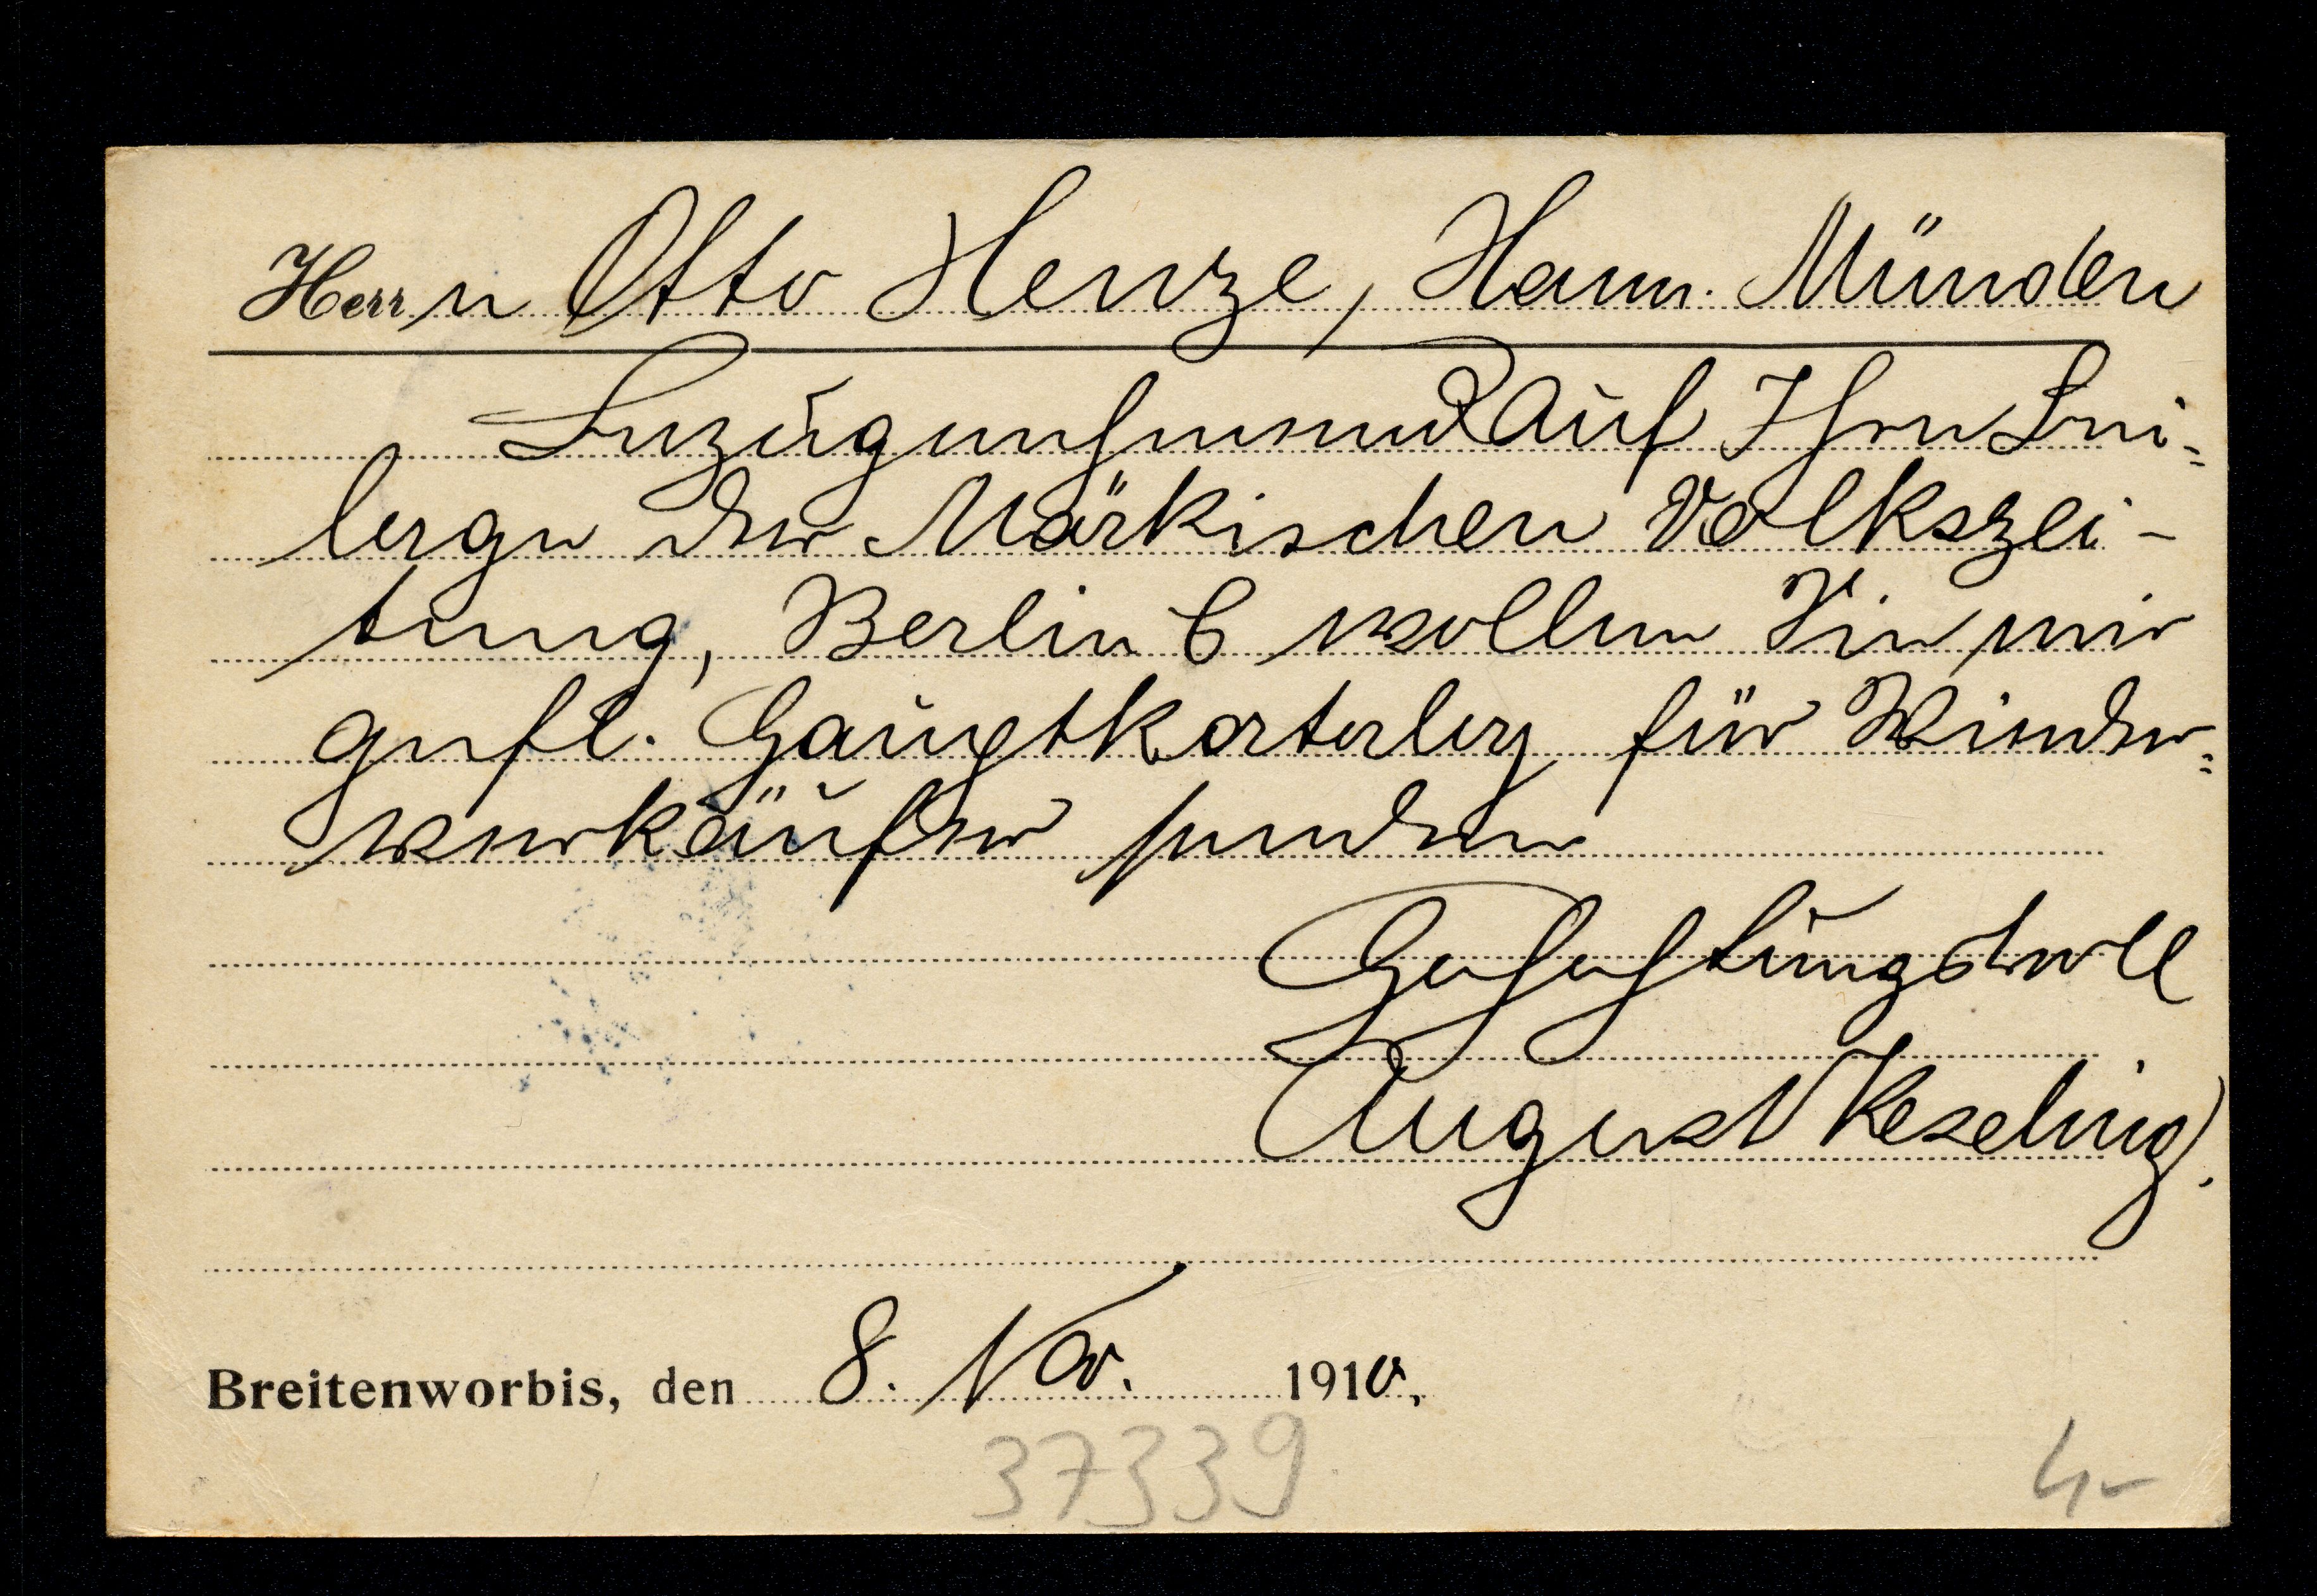 Herrn Otto Henze, Hann. Münden
Bezugnehmend auf Ihre Bei=
lage der Märkischen Volkszei-
tung, Berlin C wollen Sie mir
gefl. Hauptkatalog für Wieder=
verkäufer senden
Hochachtungsvoll
August Keseling.
Breitenworbis, den 8. Nov. 1910,
37339
4-